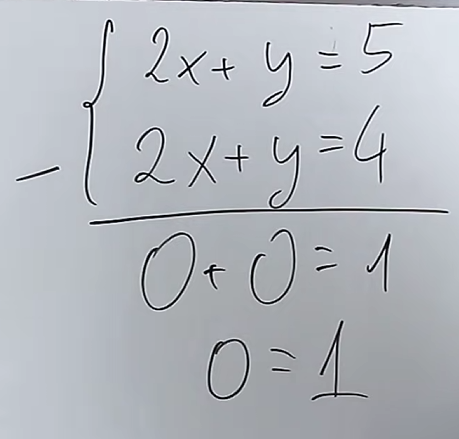 2x + y = 5
2x + y = 4
0 + 0 = 1
0 = 1